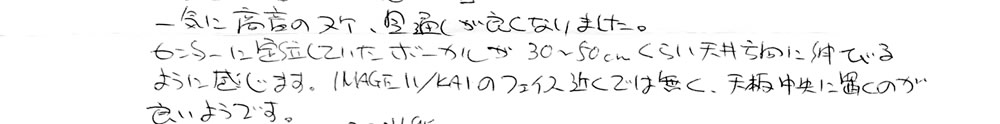 一気に高音のヌケ、見通しが良くなりました。
センターに定位していたボーカルが30~50cmくらい天井方向に伸びる
ように感じます。IMAGE11/KAIのフェイス近くでは無く、天板中央に置くのが
良いようです。